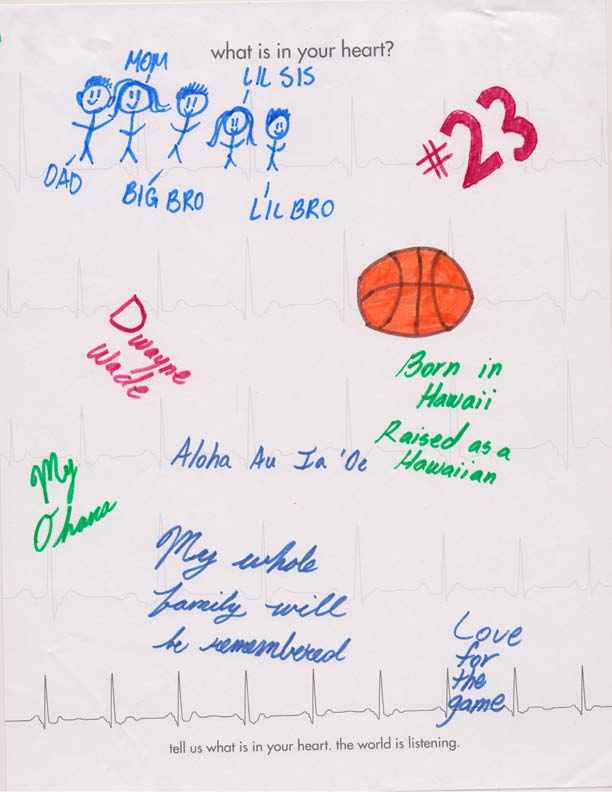 what is in your heart?
MOM
LIL SIS
DAD
BIG BRO
LIL BRO
#23
Dwayne
Wade
Born in
Hawaii
Raised as a
Hawaiian
Aloha Au Ia 'Oe
My
Ohana
My whole
family will
be remembered
Love
for
the
game
tell us what is in your heart. the world is listening.